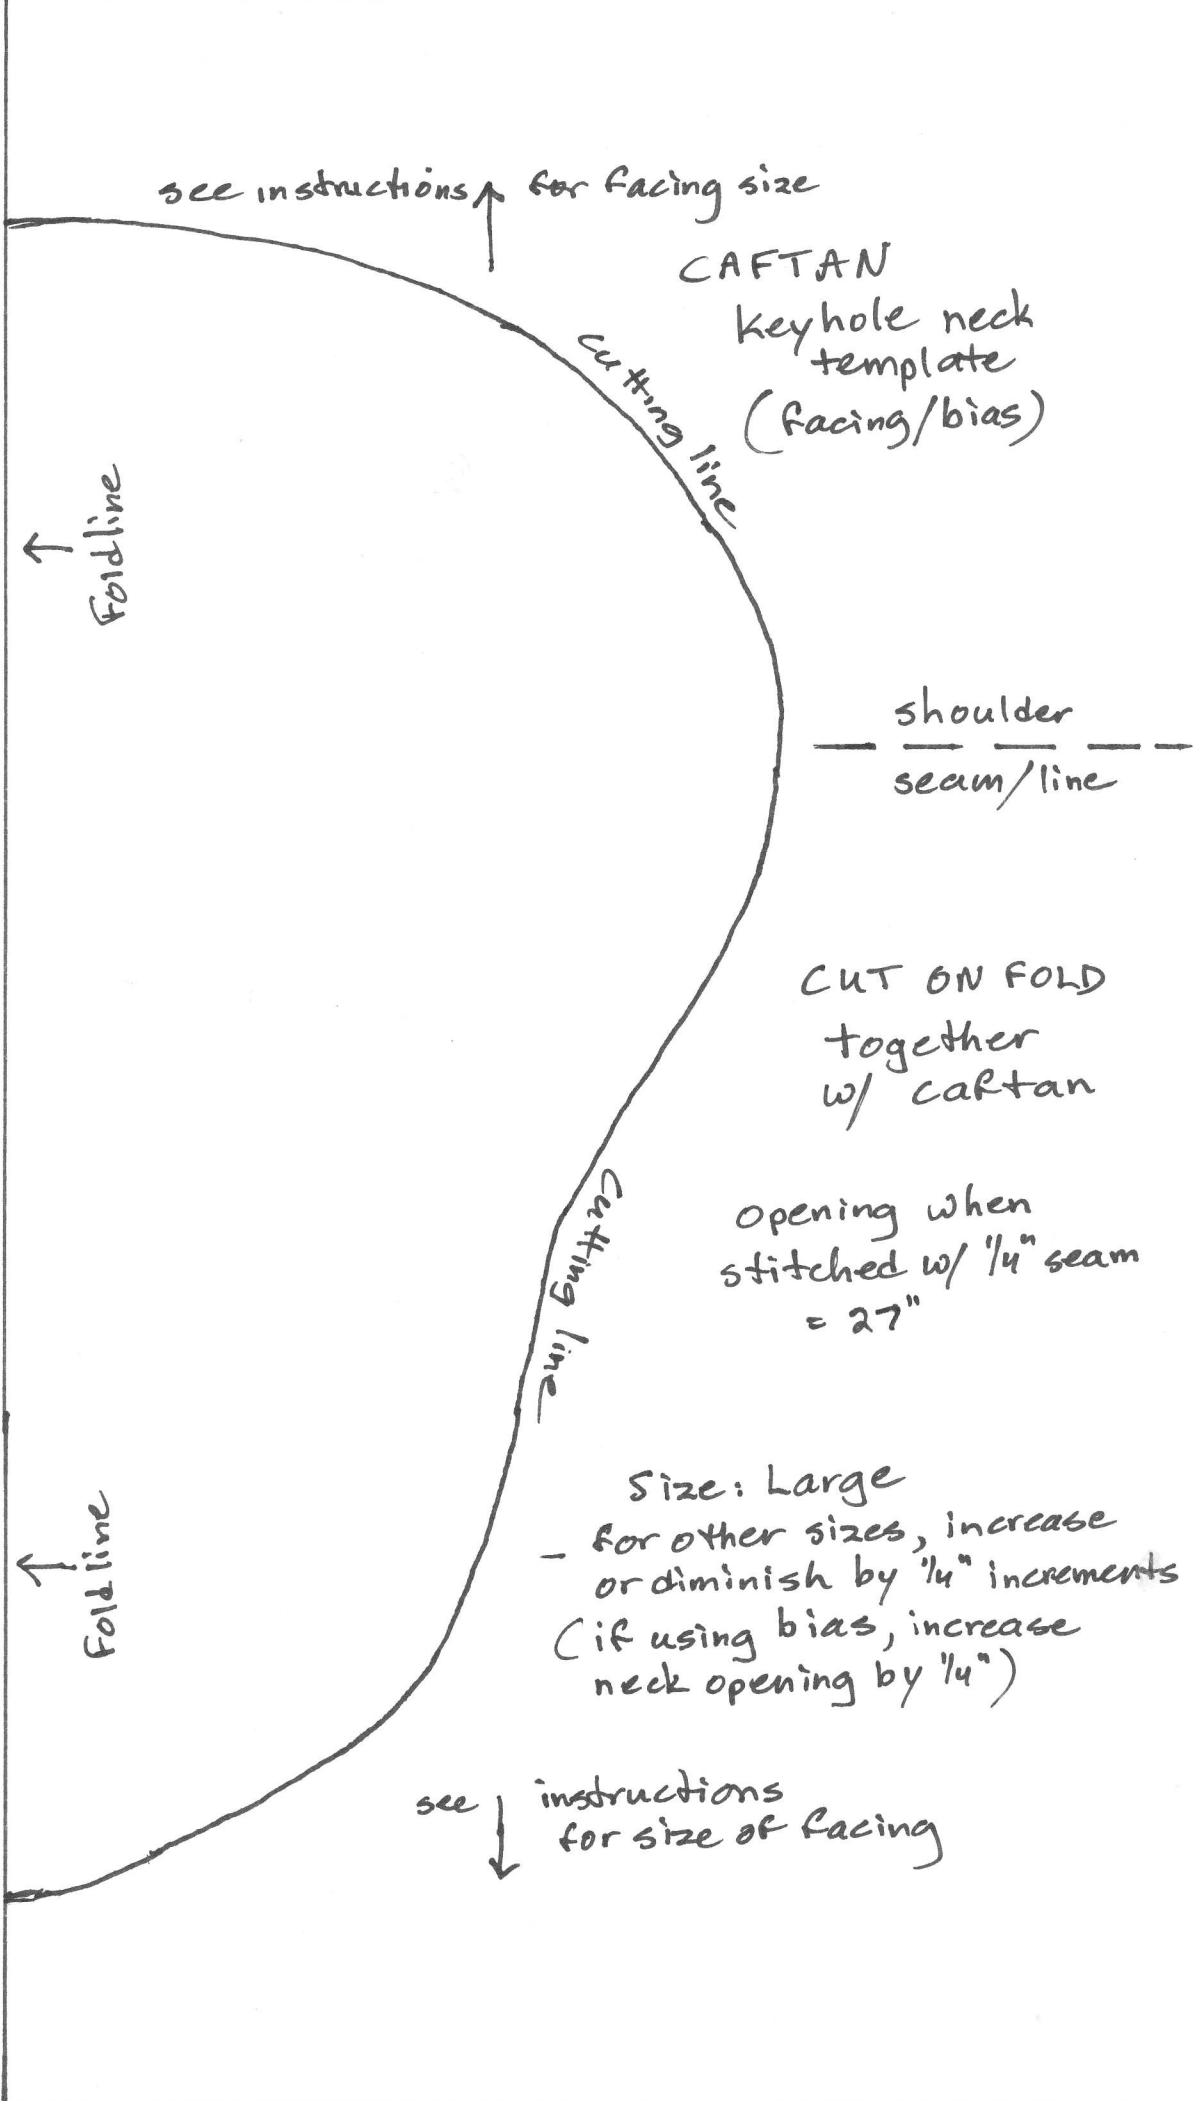 see instructions for facing size
CAFTAN
keyhole neck
template
(facing/bias)
cutting line
Foldline
shoulder
seam/line
CUT ON FOLD
together
w/ caftan
cutting line
opening when
stitched w/ 1/4" seam
= 27"
Size: Large
- for other sizes, increase
or diminish by 1/4" increments
(if using bias, increase
neck opening by 1/4")
Foldline
see instructions
for size of facing